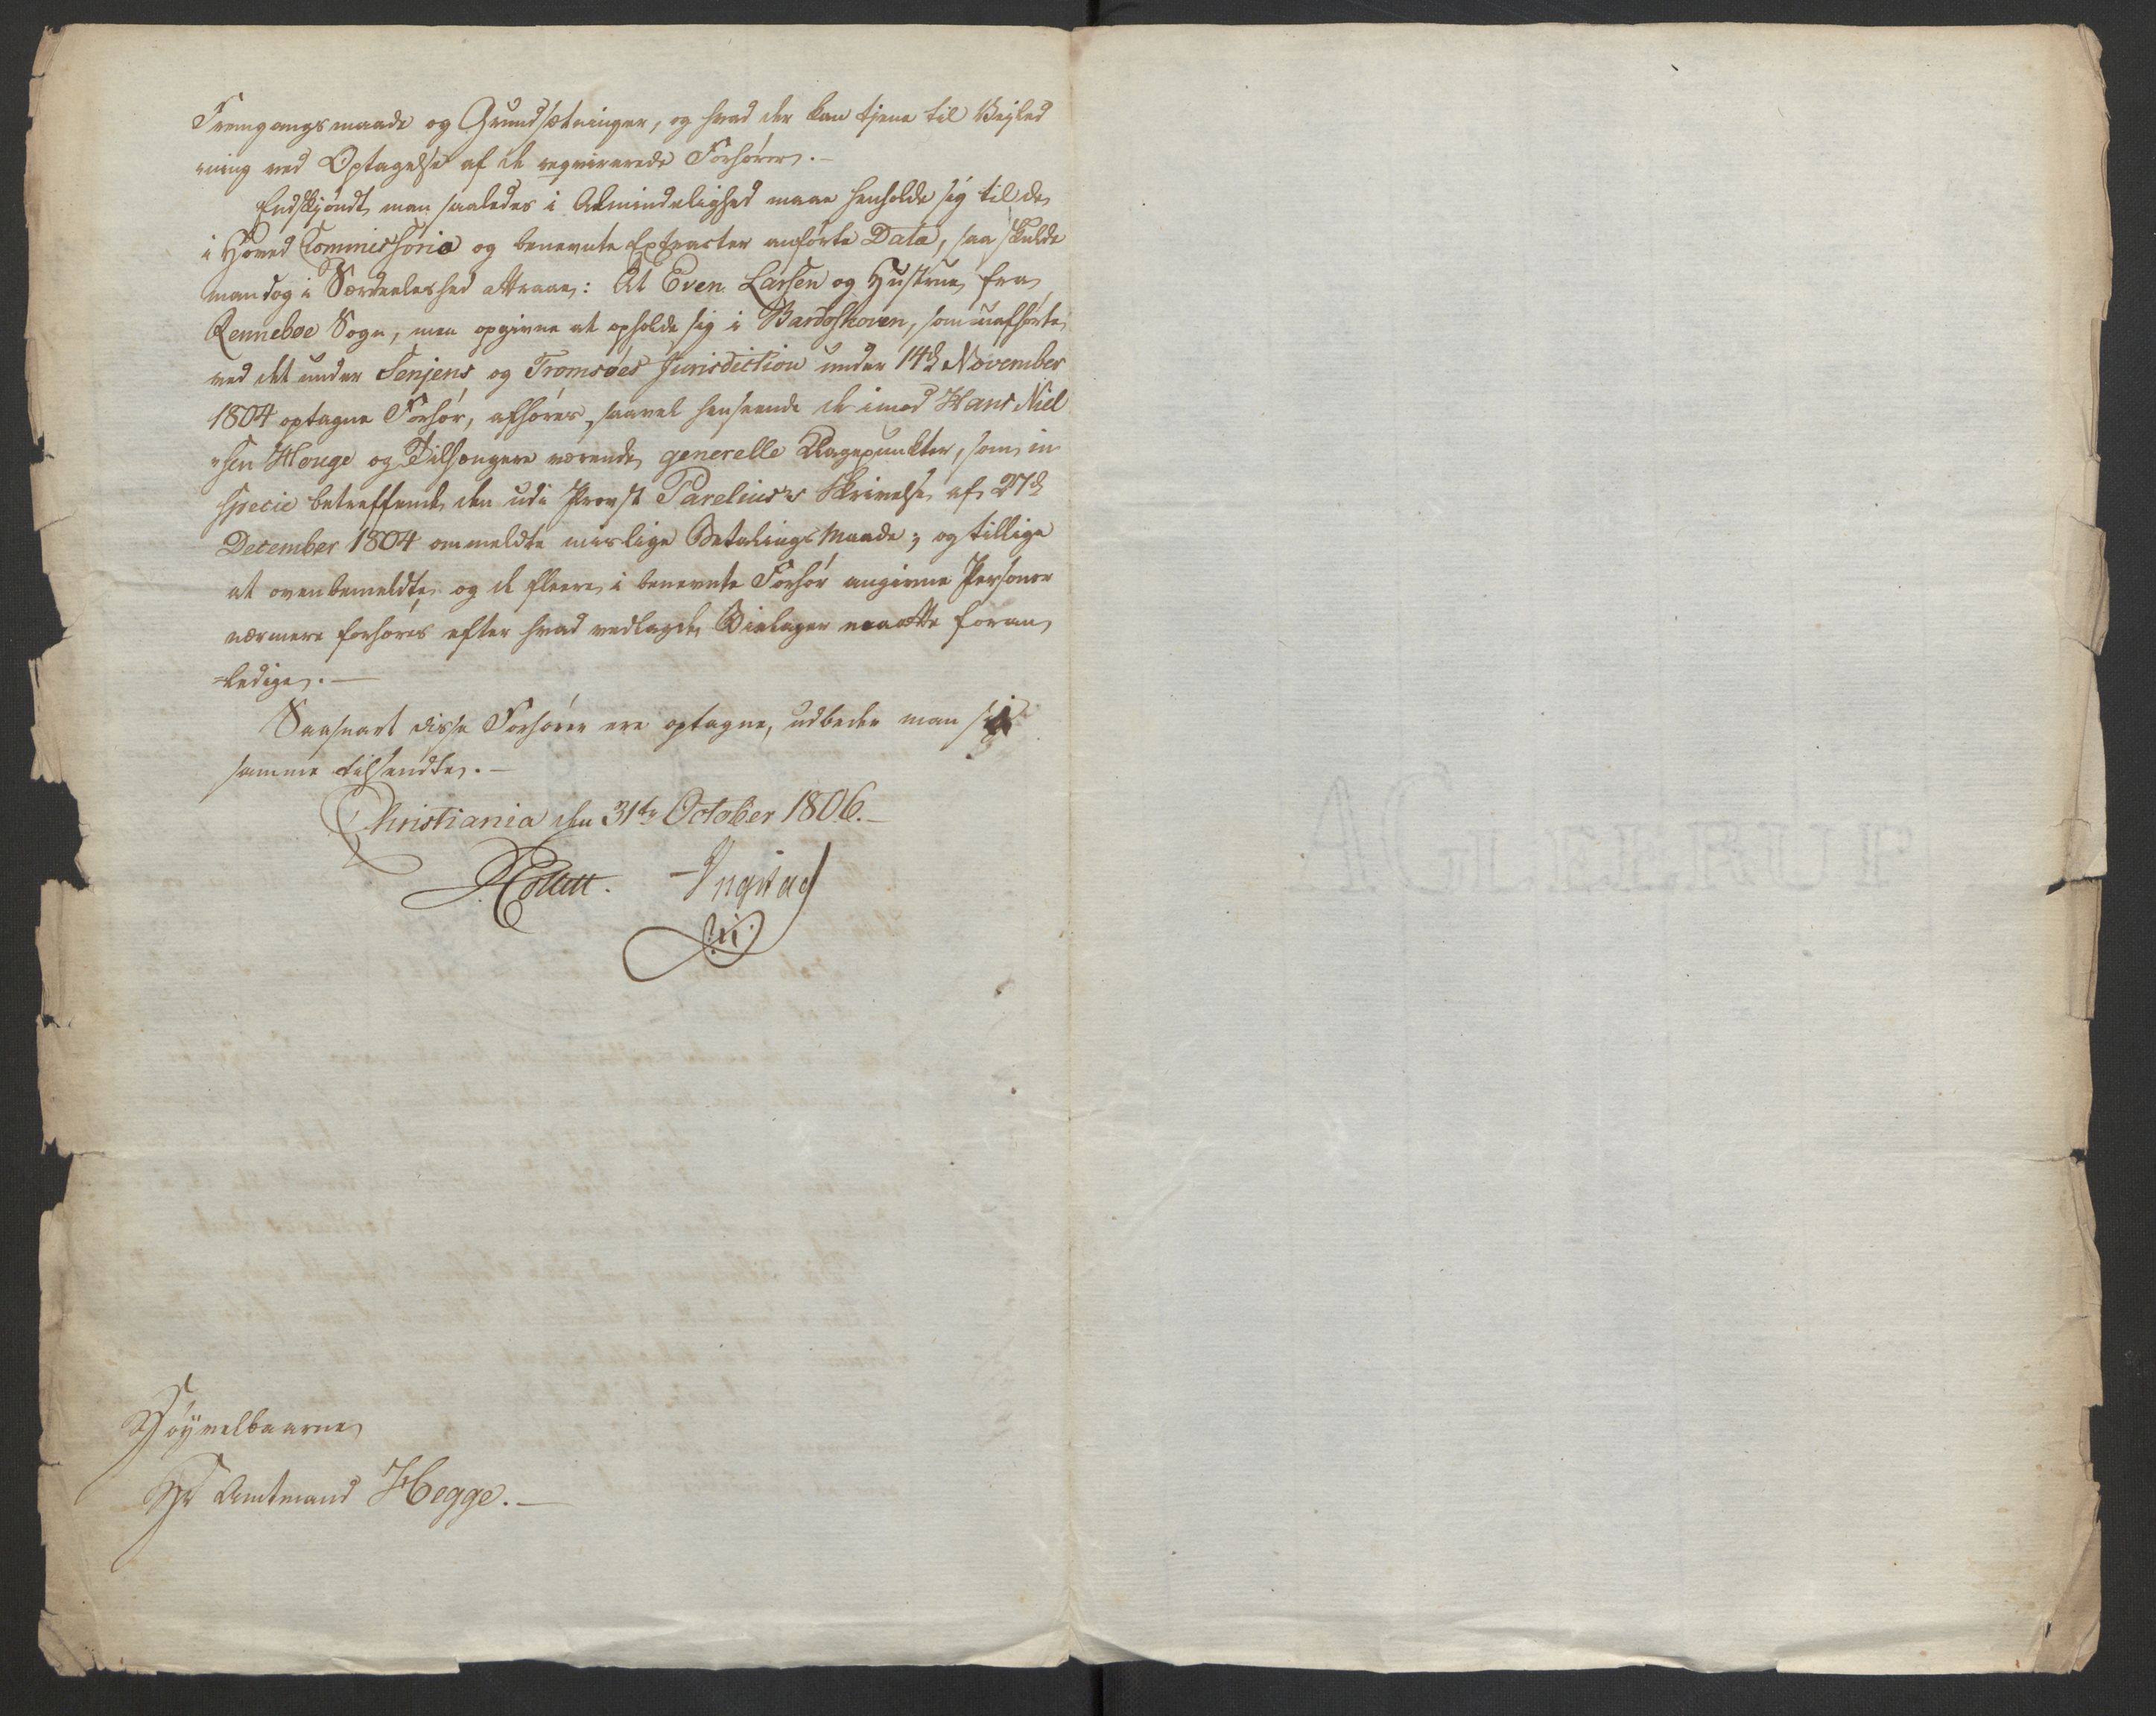 Fremgangsmaade og Grundsætninger, og hvad der kan tjene til Vejled
ning ved Optagelse af de reqvirerede Forhører.-
Endskjøndt man saaledes i Almindelighed maae henholde sig til de
i Hoved Commissoria og benevnte Extracter anførte Data, saa skulde
man dog i Særdeeleshed attraae: At Even Larsen og Hustrue, fra
Rennebøe Sogn, men opgivne at opholde sig i Bardoskoven, som uafhørte
ved det under Senjens og Tromsøes Jurisdiction under 14d November
1804 optagne Forhør, afhøres, saavel henseende de imod Hans Niel
"sen Houge og Tilhængere værende generelle Klagepunkter, som in
specie betreffende den udi Provst Parelius's Skrivelse af 27d
December 1804 ommeldte mislige Betalings Maade; og tillige
at ovenbemeldte, og de fleere i benevnte Forhør angivne Personer
nærmere forhøres efter hvad vedlagde Bielager maatte foran
=ledige.-
Saasnart disse Forhører ere optagne, udbeder man sig
samme tilsendte.-
Christiania den 31te October 1806.-
Collett. Ingstad
Høyvelbaarne
Hr Amtmand Hegge.-